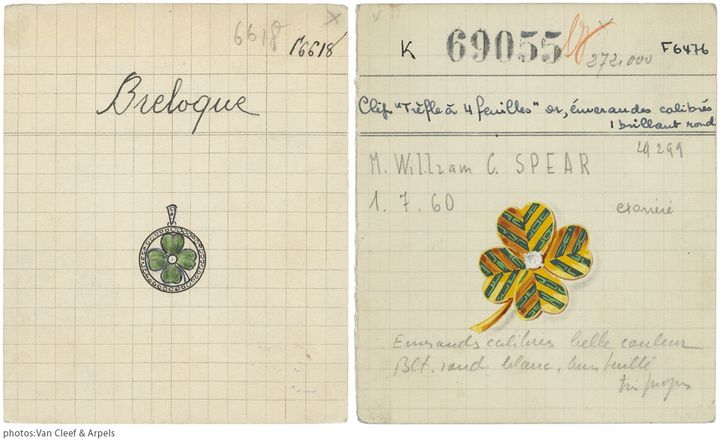 6618
16618
Breloque
K
69055
272.000
F6476
Clip "Trèfle à 4 feuilles" or, émeraudes calibrés
1 brillant rond
29299
M. William C. SPEAR
1. 7. 60
Emerauds calibrés belle couleur
Blt. rond blanc,
très propre
photos:Van Cleef & Arpels